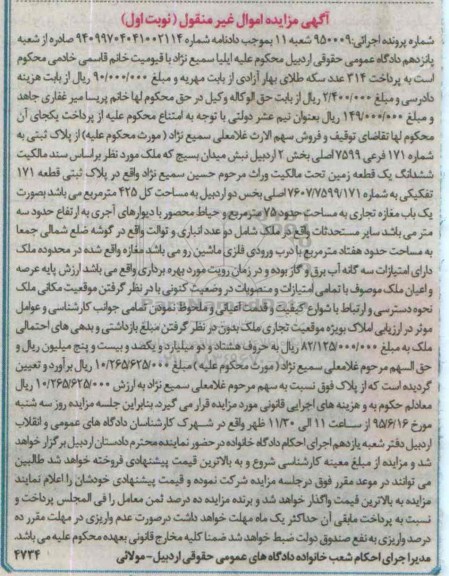 آگهی مزایده اموال غیر منقول (نوبت اول)
شماره پرونده اجرائی: ۹۵۰۰۰۹ شعبه ۱۱ بموجب دادنامه شماره ۹۴۰۹۹۷۰۴۰۴۱۰۰۲۱۱۴ صادره از شعبه
پانزدهم دادگاه عمومی حقوقی اردبیل محکوم علیه ایلیا سمیع نژاد با قیومیت خانم قاسم خادمی محکوم
است به پرداخت ۳۱۴ عدد سکه طلای بهار آزادی از بابت مهریه و مبلغ ۹۰/۰۰۰/۰۰۰ ریال از بابت هزینه
دادرسی و مبلغ ۲/۴۰۰/۰۰۰ ریال از بابت حق الوکاله وکیل در حق محکوم لها خانم پریسا میر غفاری جاهد
و مبلغ ۱۴۹/۰۰۰/۰۰۰ ریال بعنوان نیم عشر دولتی با توجه به امتناع محکوم علیه از پرداخت یکجای آن
محکوم لها تقاضای توقیف و فروش سهم الارث غلامعلی سمیع نژاد (مورث محکوم علیه) از پلاک ثبتی به
شماره ۱۷۱ فرعی ۷۵۹۹ اصلی بخش ۲ اردبیل نبش میدان بسیج که ملک مورد نظر براساس سند مالکیت
ششدانگ یک قطعه زمین تحت مالکیت وراث مرحوم حسین سمیع نژاد واقع در پلاک ثبتی قطعه ۱۷۱
تفکیکی به شماره ۷۶۰۷/۷۵۹۹/۱۷۱ اصلی بخش دو اردبیل به مساحت کل ۴۲۵ مترمربع می باشد بصورت
یک باب مغازه تجاری به مساحت حدود ۷۵ مترمربع و حیاط محصور با دیوارهای آجری به ارتفاع حدود سه
متر می باشد سایر مستحدثات واقع در ملک شامل دو عدد انباری و توالت واقع در گوشه ضلع شمالی جمعا
به مساحت حدود هفتاد مترمربع با درب ورودی فلزی ماشین رو می باشد مغازه واقع شده در محدوده ملک
دارای امتیازات سه گانه آب برق و گاز بوده و در زمان رویت مورد بهره برداری واقع می باشد ارزش پایه عرصه
و اعیان ملک موصوف با تمامی امتیازات و منصوبات در وضعیت کنونی با در نظر گرفتن موقعیت مکانی ملک
نحوه دسترسی و ارتباط با شوارع کیفیت و قدمت اعیانی و ملحوظ نمودن تمامی جوانب کارشناسی و عوامل
موثر در ارزیابی املاک بویژه موقعیت تجاری ملک بدون در نظر گرفتن مبلغ بازداشتی و بدهی های احتمالی
ملک به مبلغ ۸۲/۱۲۵/۰۰۰/۰۰۰ ریال به حروف هشتاد و دو میلیارد و یکصد و بیست و پنج میلیون ریال و
حق السهم مرحوم غلامعلی سمیع نژاد (مورث محکوم علیه) مبلغ ۱۰/۲۶۵/۶۲۵/۰۰۰ ریال برآورد و تعیین
گردیده است که از پلاک فوق نسبت به سهم مرحوم غلامعلی سمیع نژاد به ارزش ۱۰/۲۶۵/۶۲۵/۰۰۰ ریال
معادل حکم حکم به و هزینه های اجرایی قانونی مورد مزایده قرار می گیرد. بنابراین جلسه مزایده روز سه شنبه
مورخ ۹۵/۶/۱۶ از ساعت ۱۱ الی ۱۱/۳۰ ظهر واقع در شهرک کارشناسان دادگاه های عمومی و انقلاب
اردبیل دفتر شعبه یازدهم اجرای احکام دادگاه خانواده در حضور نماینده محترم دادستان اردبیل برگزار خواهد
شد و مزایده از مبلغ معینه کارشناسی شروع و به بالاترین قیمت پیشنهادی فروخته خواهد شد طالبین
می توانند در موعد مقرر فوق در جلسه مزایده شرکت نموده و قیمت پیشنهادی خودشان را اعلام نمایند
مزایده به بالاترین قیمت واگذار خواهد شد و برنده مزایده ده درصد ثمن معامل را فی المجلس پرداخت و
نسبت به پرداخت مابقی آن حداکثر یک ماه مهلت خواهد داشت درصورت عدم واریزی در مهلت مقرر ده
درصد واریزی به نفع صندوق دولت ضبط خواهد شد ضمنا کلیه مخارج قانونی بعهده محکوم علیه می باشد.
مدیر اجرای احکام شعب خانواده دادگاه های عمومی حقوقی اردبیل - مولائی ۴۷۳۴